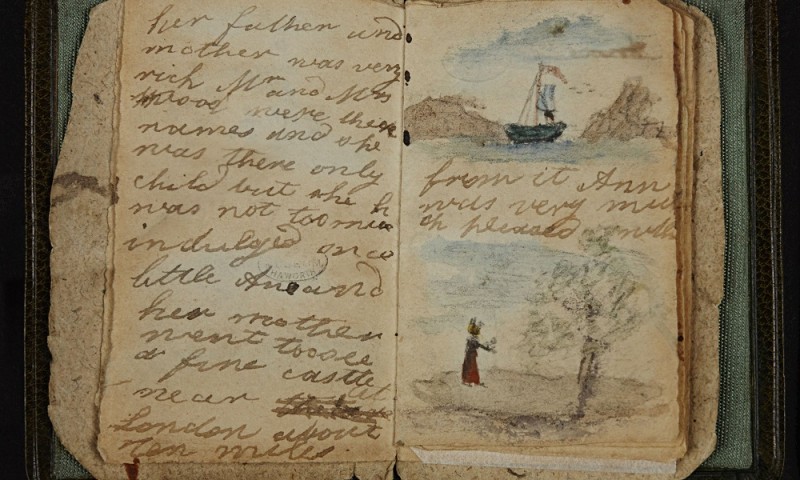 her father and
mother was very
rich Mr and Mrs
Wood were there
names and she
was there only
child but she
was not too much
indulged once
little Ann and
her mother
went too see
a fine castle
near
London about
ten miles
from it Ann
was very mu
ch pleased with